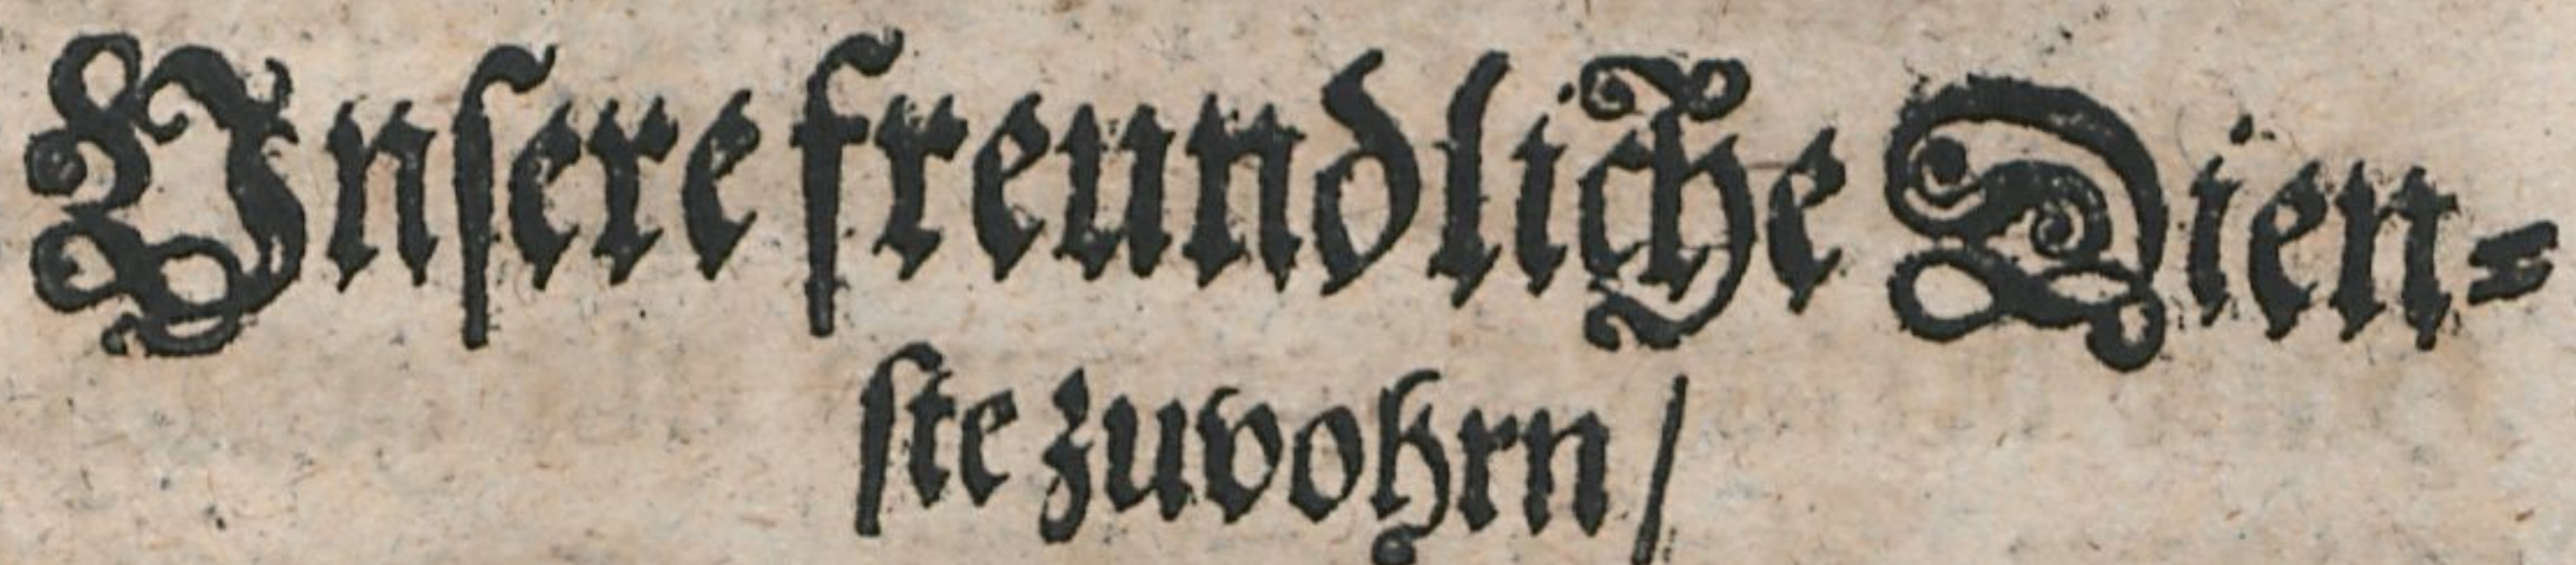 Vnſere freundliche Dien⸗
ſte zuvohrn /